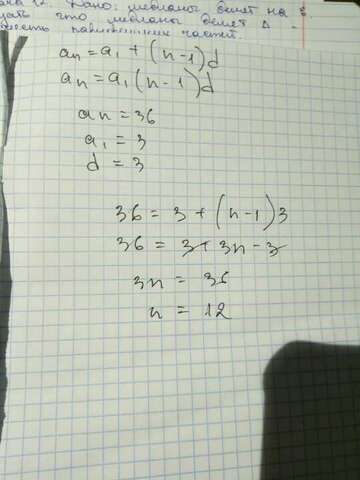 Дано: медианы делит на 6
что медианы делит Δ
частей.
an = a1 + (n-1)d
an = a1(n-1)d
an = 36
a1 = 3
d = 3
36 = 3 + (n-1)3
36 = 3 + 3n - 3
3n = 36
n = 12